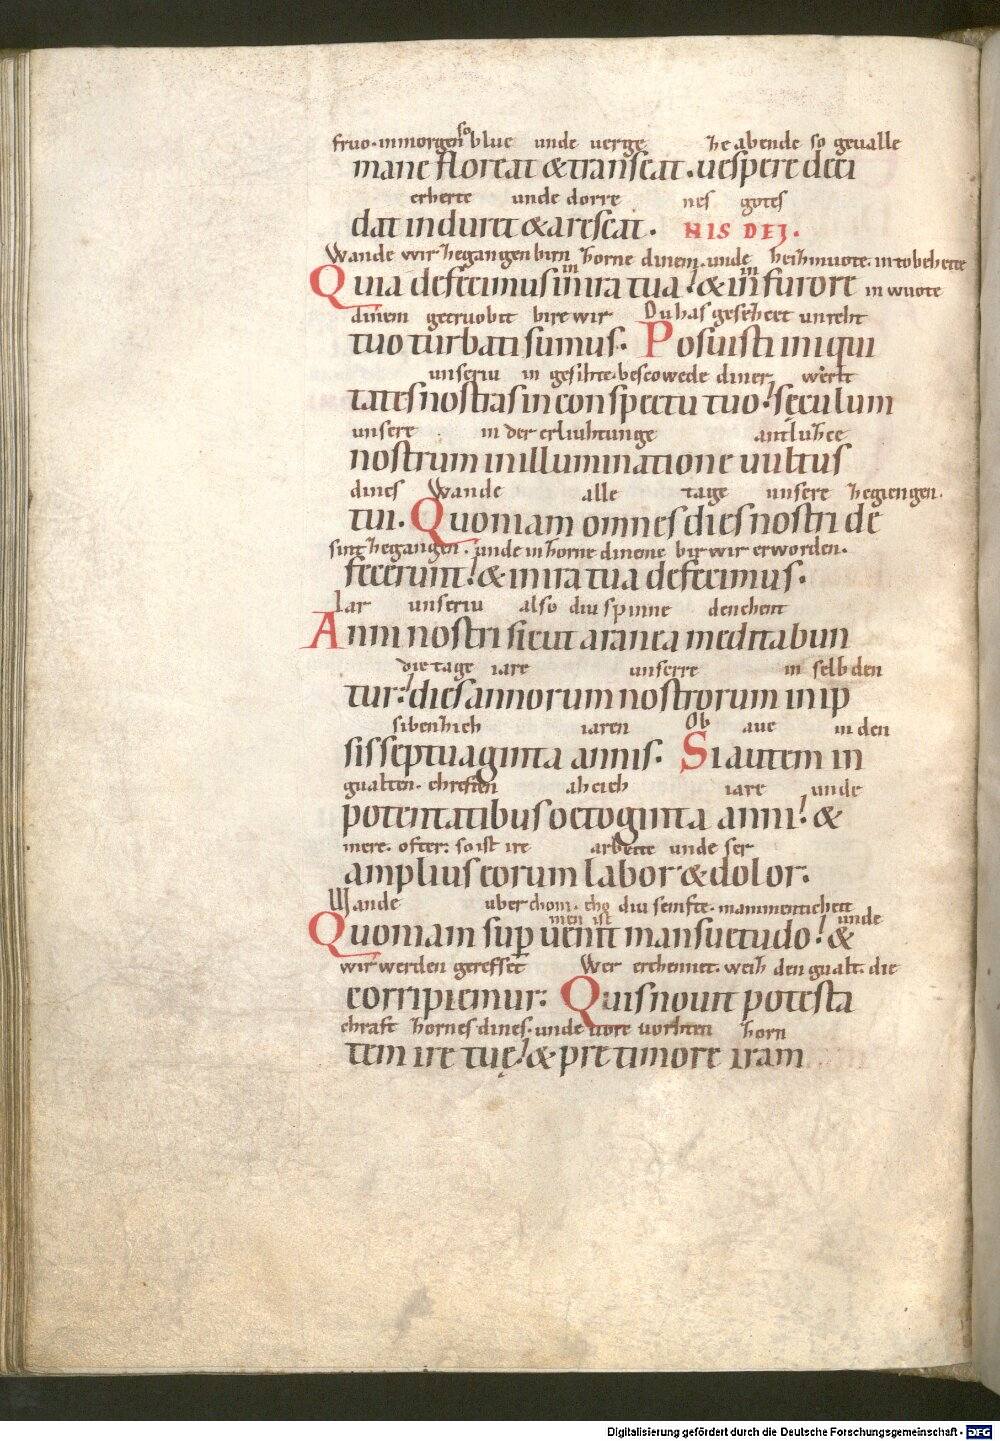 fruo. inmorgen so blue unde uerge he abende so geualle
mane floreat & transeat. uespere deci
erherte unde dorre nes gotes
dat induret & arescat. NIS DEI.
Wande wir hegangen birn in horne dinem. unde in heihmuote. in tobeheite
Quia defecimus in ira tua! & in furore in wuote
dinem getruobit bire wir Du has gesehcet unreht
tuo turbati sumus. Posuisti iniqui
unseriu in gesihte. bescowede diner, werlt
tates nostras in conspectu tuo! sęculum
unsere in der erliuhtunge antluhce
nostrum in illuminatione uultus
dines Wande alle tage unsere hegiengen.
tui. Quoniam omnes dies nostri de
sint hegangen. unde in horne dineme bir wir erworden.
fecerunt! & in ira tua defecimus.
Iar unseriu also diu spinne denchent
Anni nostri sicut aranea meditabun
die tage iare unserre in selb den
tur! dies annorum nostrorum in ip
sibenhich iaren Ob aue in den
sis septuaginta annis. Si autem in
gualten. chreften ahcich iare unde
potentatibus octoginta anni! &
mere. ofter. so ist ire arbeite unde ser
amplius eorum labor & dolor.
Wande uber chom. cho men ist diu semfte. mammenticheit unde
Quoniam sup uenit mansuetudo! &
wir werden gereffset Wer erchennet. weih den gualt. die
corripiemur: Quis nouit potesta
chraft hornes dines. unde uore uorhten horn
tem ire tuę! & pre timore iram
Digitalisierung gefördert durch die Deutsche Forschungsgemeinschaft - DFG